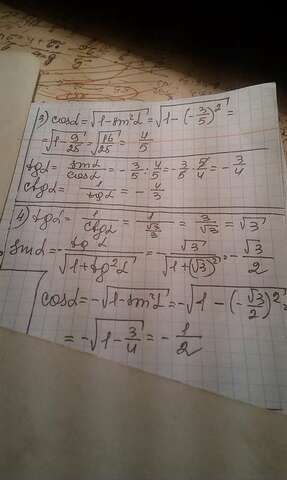 3) cosα = √(1-sin²α) = √(1-(-3/5)²) =
= √(1-9/25) = √(16/25) = 4/5
tgα = sinα/cosα = -3/5 : 4/5 = -3/5 · 5/4 = -3/4
ctgα = 1/tgα = -4/3
4) tgα = 1/ctgα = 1/(√3/3) = 3/√3 = √3
sinα = -tgα/√(1+tg²α) = -√3/√(1+(√3)²) = -√3/2
cosα = -√(1-sin²α) = -√(1-(-√3/2)²) =
= -√(1-3/4) = -1/2